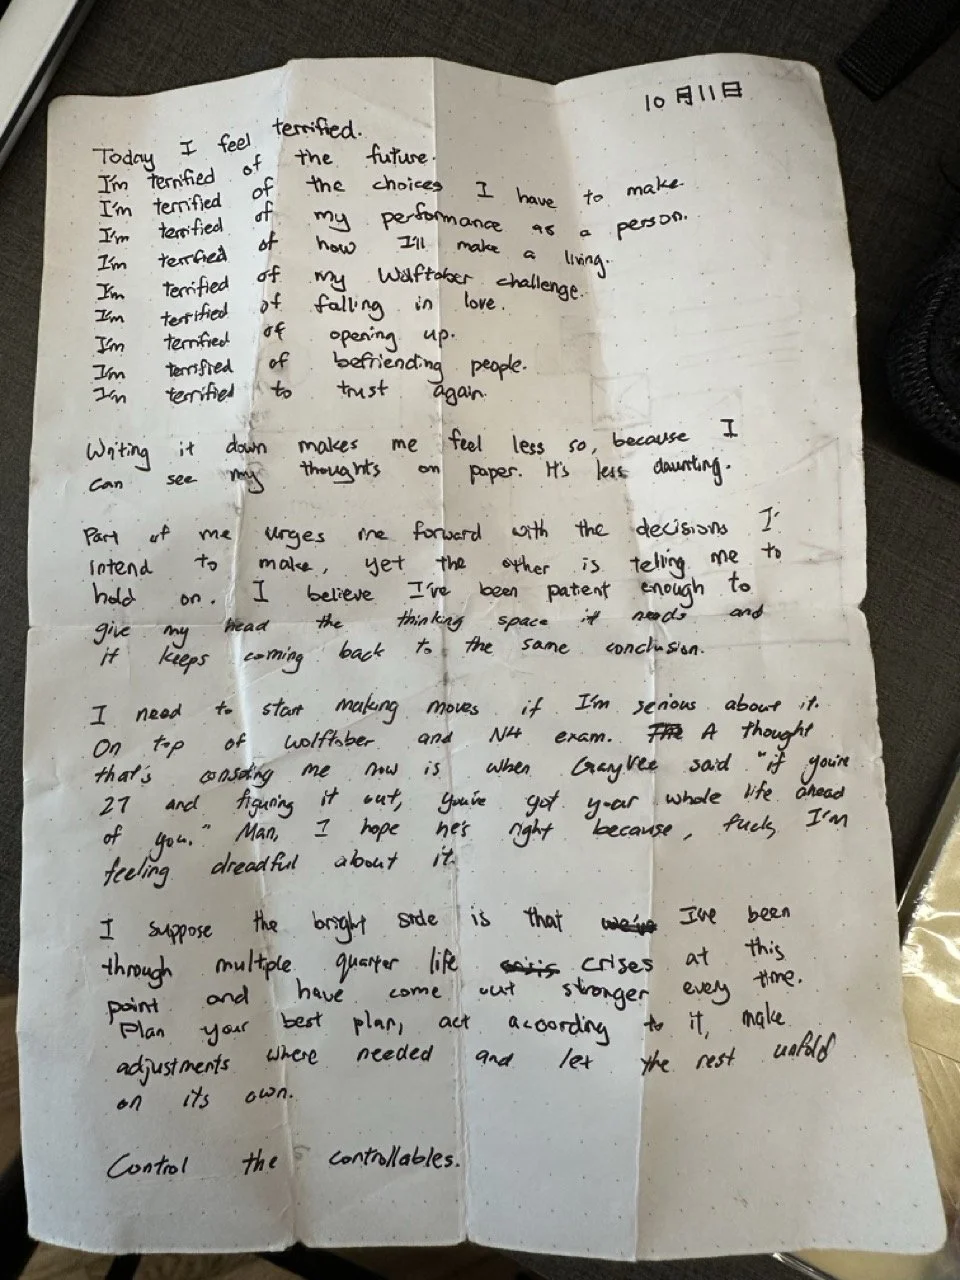 10月11日
Today I feel terrified.
I'm terrified of the future.
I'm terrified of the choices I have to make.
I'm terrified of my performance as a person.
I'm terrified of how I'll make a living.
I'm terrified of my Wolftober challenge.
I'm terrified of falling in love.
I'm terrified of opening up.
I'm terrified of befriending people.
I'm terrified to trust again.
Writing it down makes me feel less so, because I
can see my thoughts on paper. It's less daunting.
Part of me urges me forward with the decisions I
intend to make, yet the other is telling me to
hold on. I believe I've been patient enough to
give my head the thinking space it needs and
it keeps coming back to the same conclusion.
I need to start making moves if I'm serious about it.
On top of Wolftober and N4 exam. The A thought
that's consoling me now is when GaryVee said "if you're
27 and figuring it out, you've got your whole life ahead
of you." Man, I hope he's right because, fuck, I'm
feeling dreadful about it.
I suppose the bright side is that we've I've been
through multiple quarter life crisis crises at this
point and have come out stronger every time.
Plan your best plan, act according to it, make
adjustments where needed and let the rest unfold
on its own.
Control the controllables.